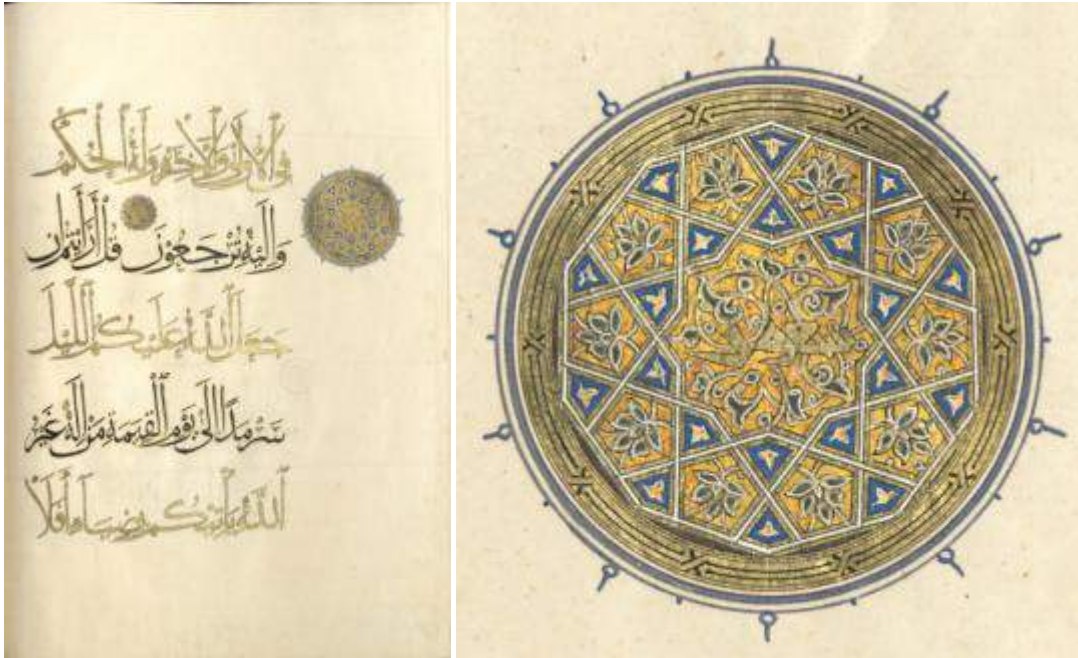 فِي الْأُولَىٰ وَالْآخِرَةِ وَلَهُ الْحُكْمُ
وَإِلَيْهِ تُرْجَعُونَ قُلْ أَرَأَيْتُمْ إِنْ
جَعَلَ اللَّهُ عَلَيْكُمُ اللَّيْلَ
سَرْمَدًا إِلَىٰ يَوْمِ الْقِيَمَةِ مَنْ إِلَٰهٌ غَيْرُ
اللَّهِ يَأْتِيكُمْ بِضِيَاءٍ أَفَلَا